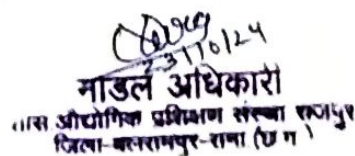 23/10/24
माडल अधिकारी
औद्योगिक प्रशिक्षण संस्था राजपुर
जिला-बलरामपुर-रामा (छ ग )